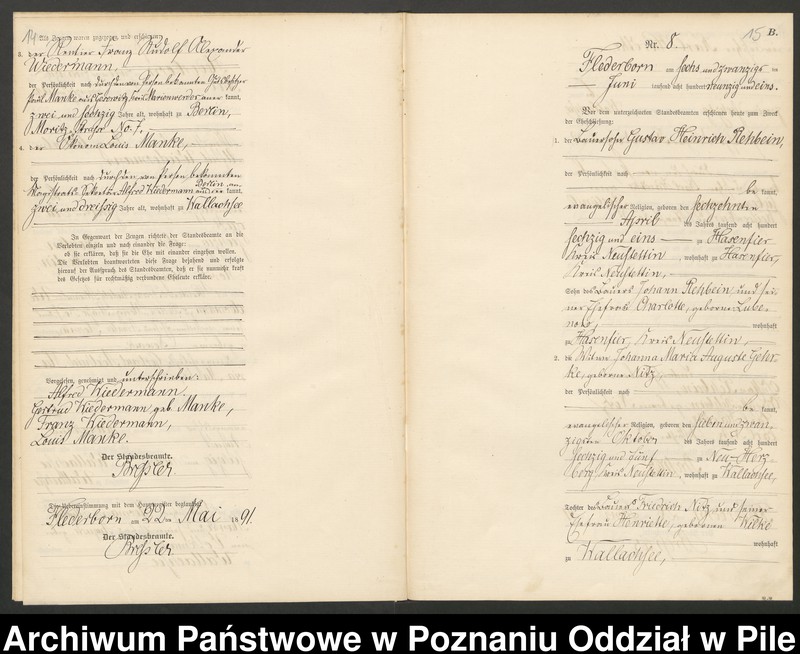 14
Als Zeugen waren zugezogen und erschienen:
3. der Rentier Franz Rudolf Alexander
Wiedermann,
der Persönlichkeit nach durch den von Person bekannten Gutsbesitzer
Paul Manke aus Kreis Marienwerder kannt,
zwei und sechzig Jahre alt, wohnhaft zu Berlin,
Moritz Straße No. 7,
4. der Ökonom Louis Manke,
der Persönlichkeit nach durch den von Person bekannten
Magistrats-Sekretär Alfred Wiedermann aus Berlin kannt,
zwei und dreißig Jahre alt, wohnhaft zu Wallachsee
In Gegenwart der Zeugen richtete der Standesbeamte an die
Verlobten einzeln und nach einander die Frage:
ob sie erklären, daß sie die Ehe mit einander eingehen wollen.
Die Verlobten beantworteten diese Frage bejahend und erfolgte
hierauf der Ausspruch des Standesbeamten, daß er sie nunmehr kraft
des Gesetzes für rechtmäßig verbundene Eheleute erkläre.
Vorgelesen, genehmigt und unterschrieben:
Alfred Wiedermann
Gertrud Wiedermann geb. Manke,
Franz Wiedermann,
Louis Manke.
Der Standesbeamte.
Die Uebereinstimmung mit dem Hauptregister beglaubigt
Flederborn am 22ten Mai 1891.
Der Standesbeamte.
15
B.
Nr. 8.
Flederborn am sechs und zwanzigsten
Juni tausend acht hundert neunzig und eins.
Vor dem unterzeichneten Standesbeamten erschienen heute zum Zweck
der Eheschließung:
1. der Bauersohn Gustav Heinrich Rehbein,
der Persönlichkeit nach
be kannt,
evangelischer Religion, geboren den sechzehnten
April des Jahres tausend acht hundert
sechzig und eins zu Hasenfier
Kreis Neustettin, wohnhaft zu Hasenfier,
Kreis Neustettin,
Sohn des Bauers Johann Rehbein und sei-
ner Ehefrau Charlotte, geborene Lube-
now, wohnhaft
zu Hasenfier, Kreis Neustettin,
2. die Witwe Johanna Maria Auguste Gehr-
ke, geborene Nitz,
der Persönlichkeit nach
be kannt,
evangelischer Religion, geboren den sieben und zwan-
zigsten Oktober des Jahres tausend acht hundert
sechzig und fünf zu Neu-Herz-
berg, Kreis Neustettin, wohnhaft zu Wallachsee,
Tochter des Bauers Friedrich Nitz und seiner
Ehefrau Henriette, geborenen Wilke
wohnhaft
zu Wallachsee,
Archiwum Państwowe w Poznaniu Oddział w Pile